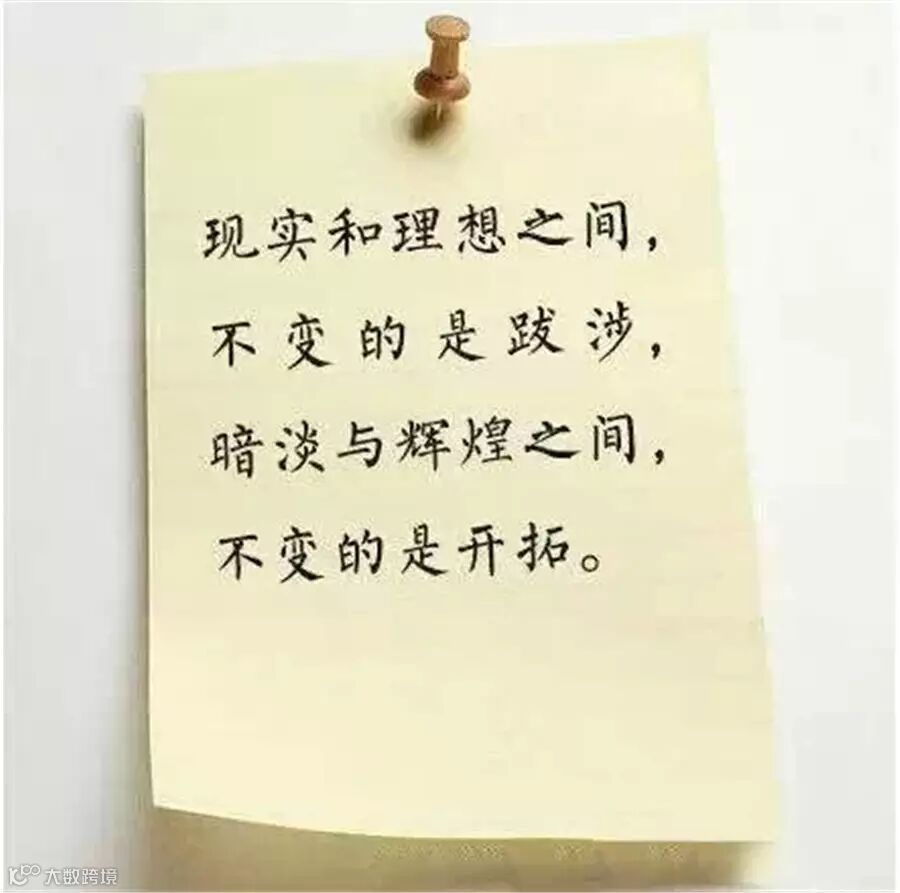 现实和理想之间，
不变的是跋涉，
暗淡与辉煌之间，
不变的是开拓。
大数跨境